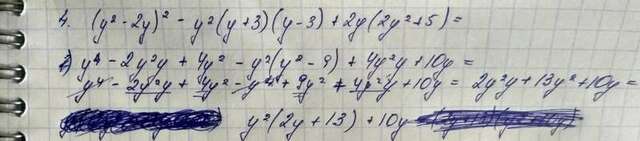 4. (y²-2y)² - y²(y+3)(y-3) + 2y(2y²+5) =
y⁴ - 2y²y + 4y² - y²(y²-9) + 4y²y + 10y =
y⁴ - 2y²y + 4y² - y⁴ + 9y² + 4y²y + 10y = 2y²y + 13y² + 10y =
y²(2y+13) + 10y